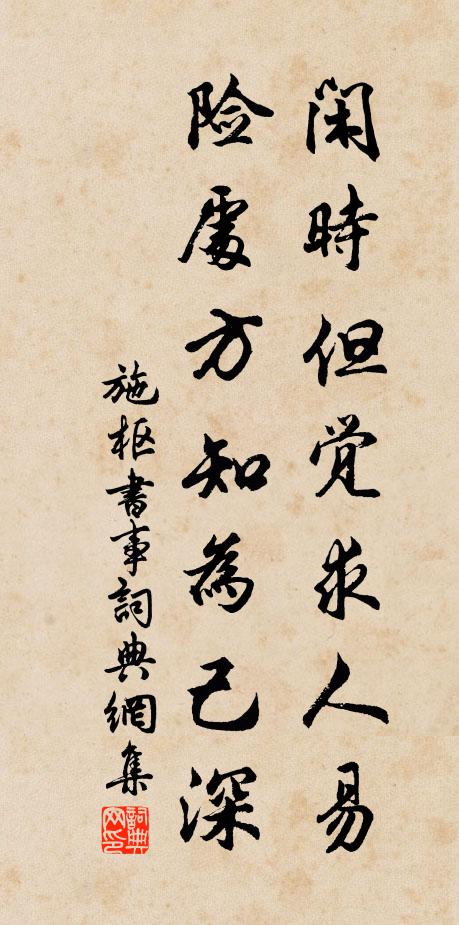 閑時但觉求人易
险處方知為己深
施枢書事詞典網集
詞典网印